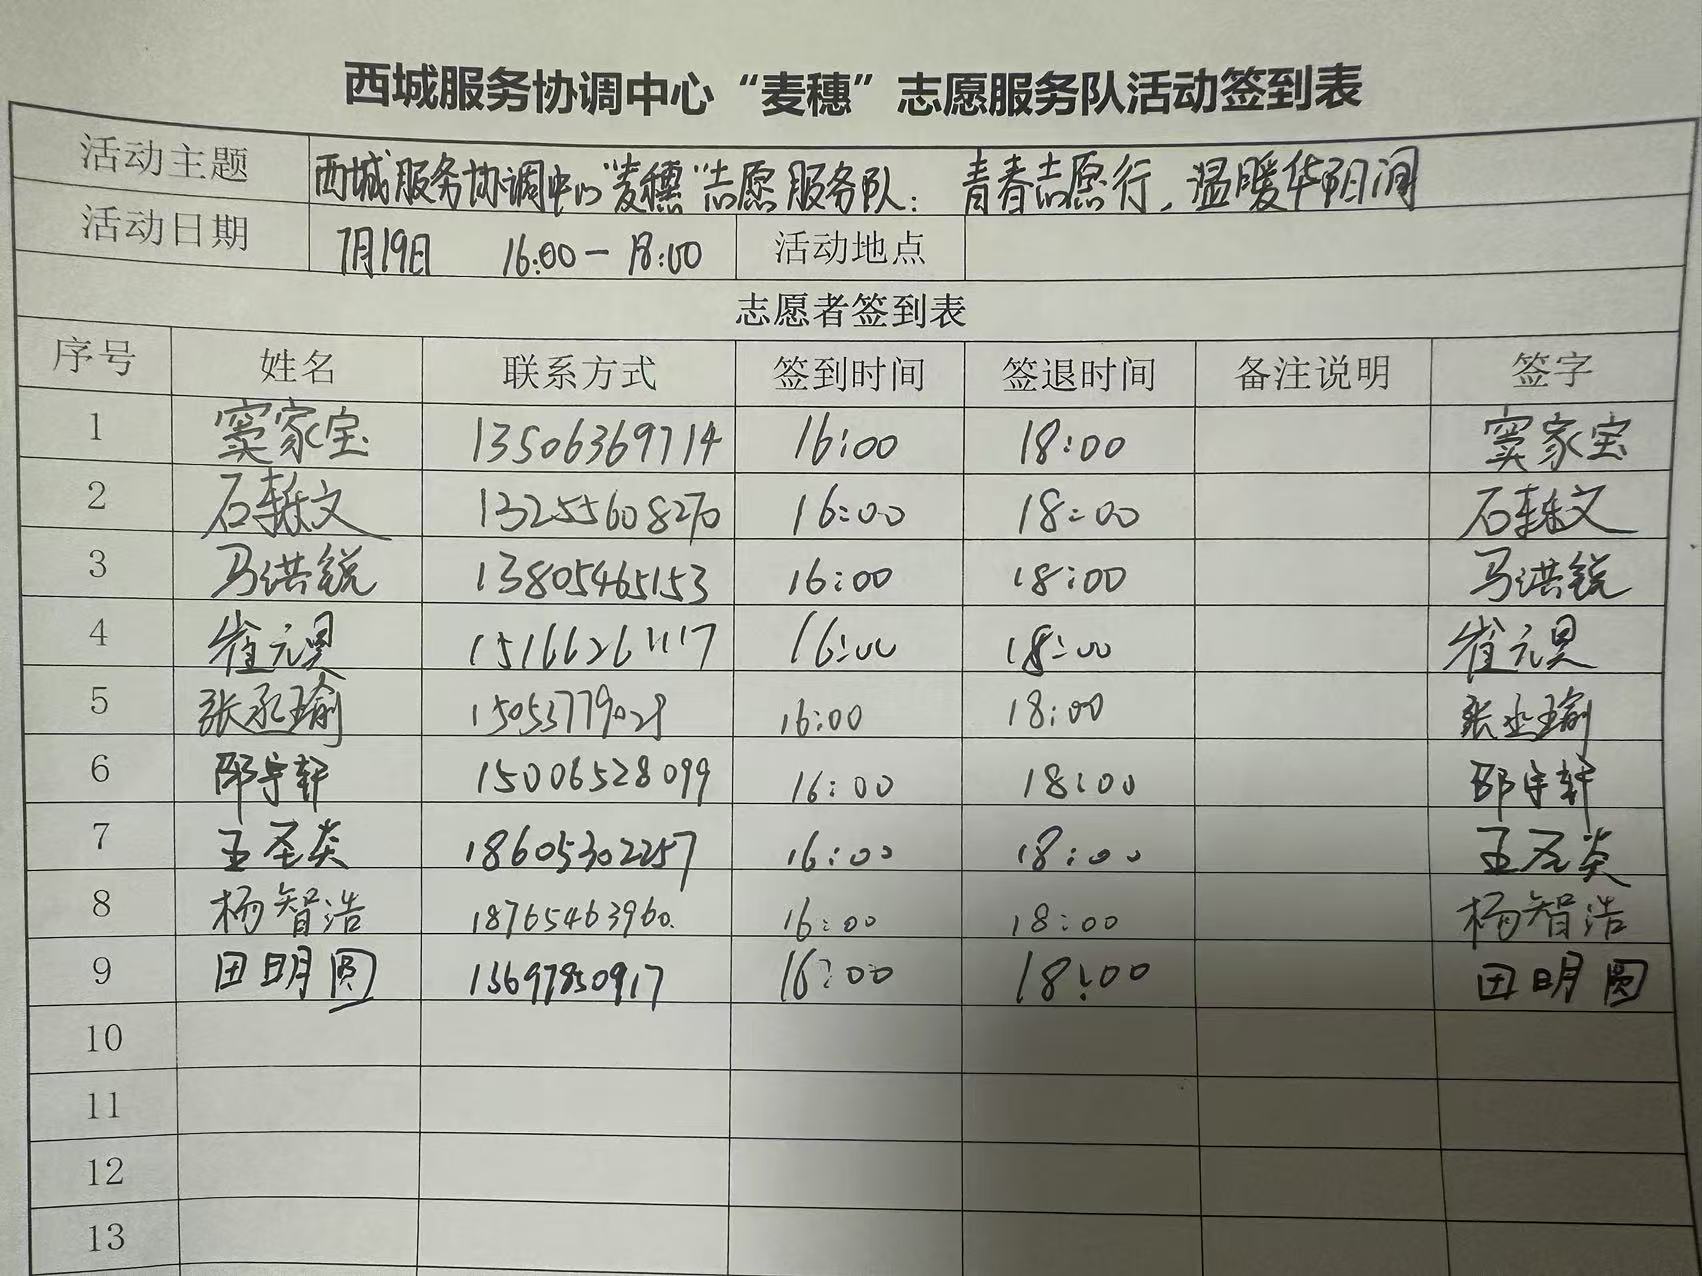 西城服务协调中心“麦穗”志愿服务队活动签到表
活动主题 西城服务协调中心“麦穗”志愿服务队：青春志愿行，温暖华阳润
活动日期 7月19日 16:00-18:00 活动地点
志愿者签到表
序号 姓名 联系方式 签到时间 签退时间 备注说明 签字
1 窦家宝 13506369714 16:00 18:00 窦家宝
2 石轶文 13255608270 16:00 18:00 石轶文
3 马洪锐 13805465153 16:00 18:00 马洪锐
4 崔元昊 15166261117 16:00 18:00 崔元昊
5 张丞瑜 15053779029 16:00 18:00 张丞瑜
6 邵宇轩 15006528099 16:00 18:00 邵宇轩
7 王圣炎 18605302257 16:00 18:00 王圣炎
8 杨智浩 18765463960 16:00 18:00 杨智浩
9 田明圆 13697850917 16:00 18:00 田明圆
10
11
12
13